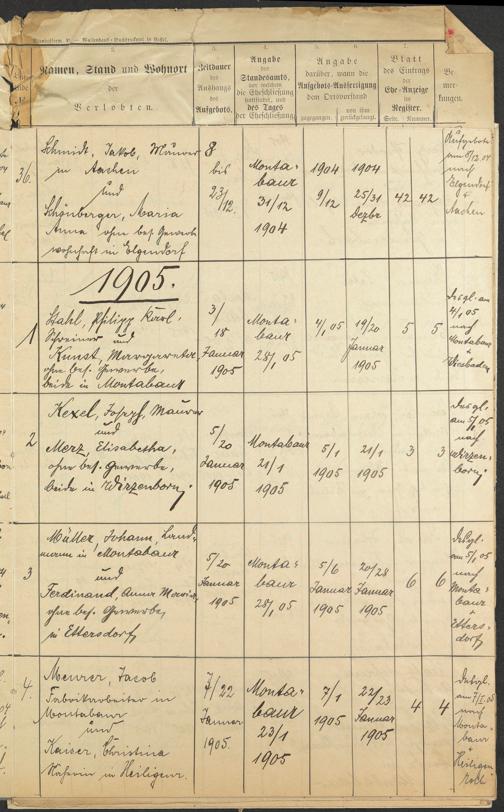 Namen, Stand und Wohnort
der
Verlobten.
Zeitdauer
des
Aushangs
des
Aufgebots.
Angabe
des
Standesamts,
vor welchem
die Eheschließung
stattfindet, und
des Tages
der Eheschließung
Angabe
darüber, wann die
Aufgebots-Ausfertigung
dem Ortsvorstand
zugegangen.
von ihm
zurückgelangt.
Blatt
des Eintrags
der
Ehe-Anzeige
im
Register.
Seite. Nummer.
Be-
mer-
kungen.
36.
Schmidt, Jakob, Maurer
in Aachen
und
Schönberger, Maria
Anna ohne bes. Gewerbe
wohnhaft in Elgendorf
8
bis
23/12.
Monta-
baur
31/12
1904
1904
9/12
1904
25/31
Dezbr
42 42
Aufgebot
am 8/12.04
nach
Elgendorf
u
Aachen
1905.
1
Stahl, Philipp Karl,
Schreiner und
Kunst, Margaretha
ohne bes. Gewerbe,
beide in Montabaur
3/
18
Januar
1905
Monta-
baur
28/1 05
4/1 05
19/20
Januar
1905
5 5
Desgl. am
4/1 05
nach
Montabaur
u
Wiesbaden
2
Kexel, Joseph, Maurer
und
Merz, Elisabetha,
ohne bes. Gewerbe,
beide in Wirzenborn
5/
20
Januar
1905
Montabaur
21/1
1905
5/1
1905
21/1
1905
3 3
Desgl.
am 5/1 05
nach
Wirzen-
born
3
Müller, Johann, Land-
mann in Montabaur
und
Ferdinand, Anna Maria
ohne bes. Gewerbe,
in Ettersdorf
5/20
Januar
1905
Monta-
baur
28/1 05
5/6
Januar
1905
20/28
Januar
1905
6 6
Desgl.
am 5/1 05
nach
Monta-
baur
u
Etters-
dorf
4.
Meurer, Jacob
Fabrikarbeiter in
Montabaur
und
Kaiser, Christina
Näherin in
7/22
Januar
1905.
Monta-
baur
23/1
1905
7/1
1905
22/23
Januar
1905
4 4
Desgl.
am 7/I.05
nach
Monta-
baur
u
Heiligen
roth